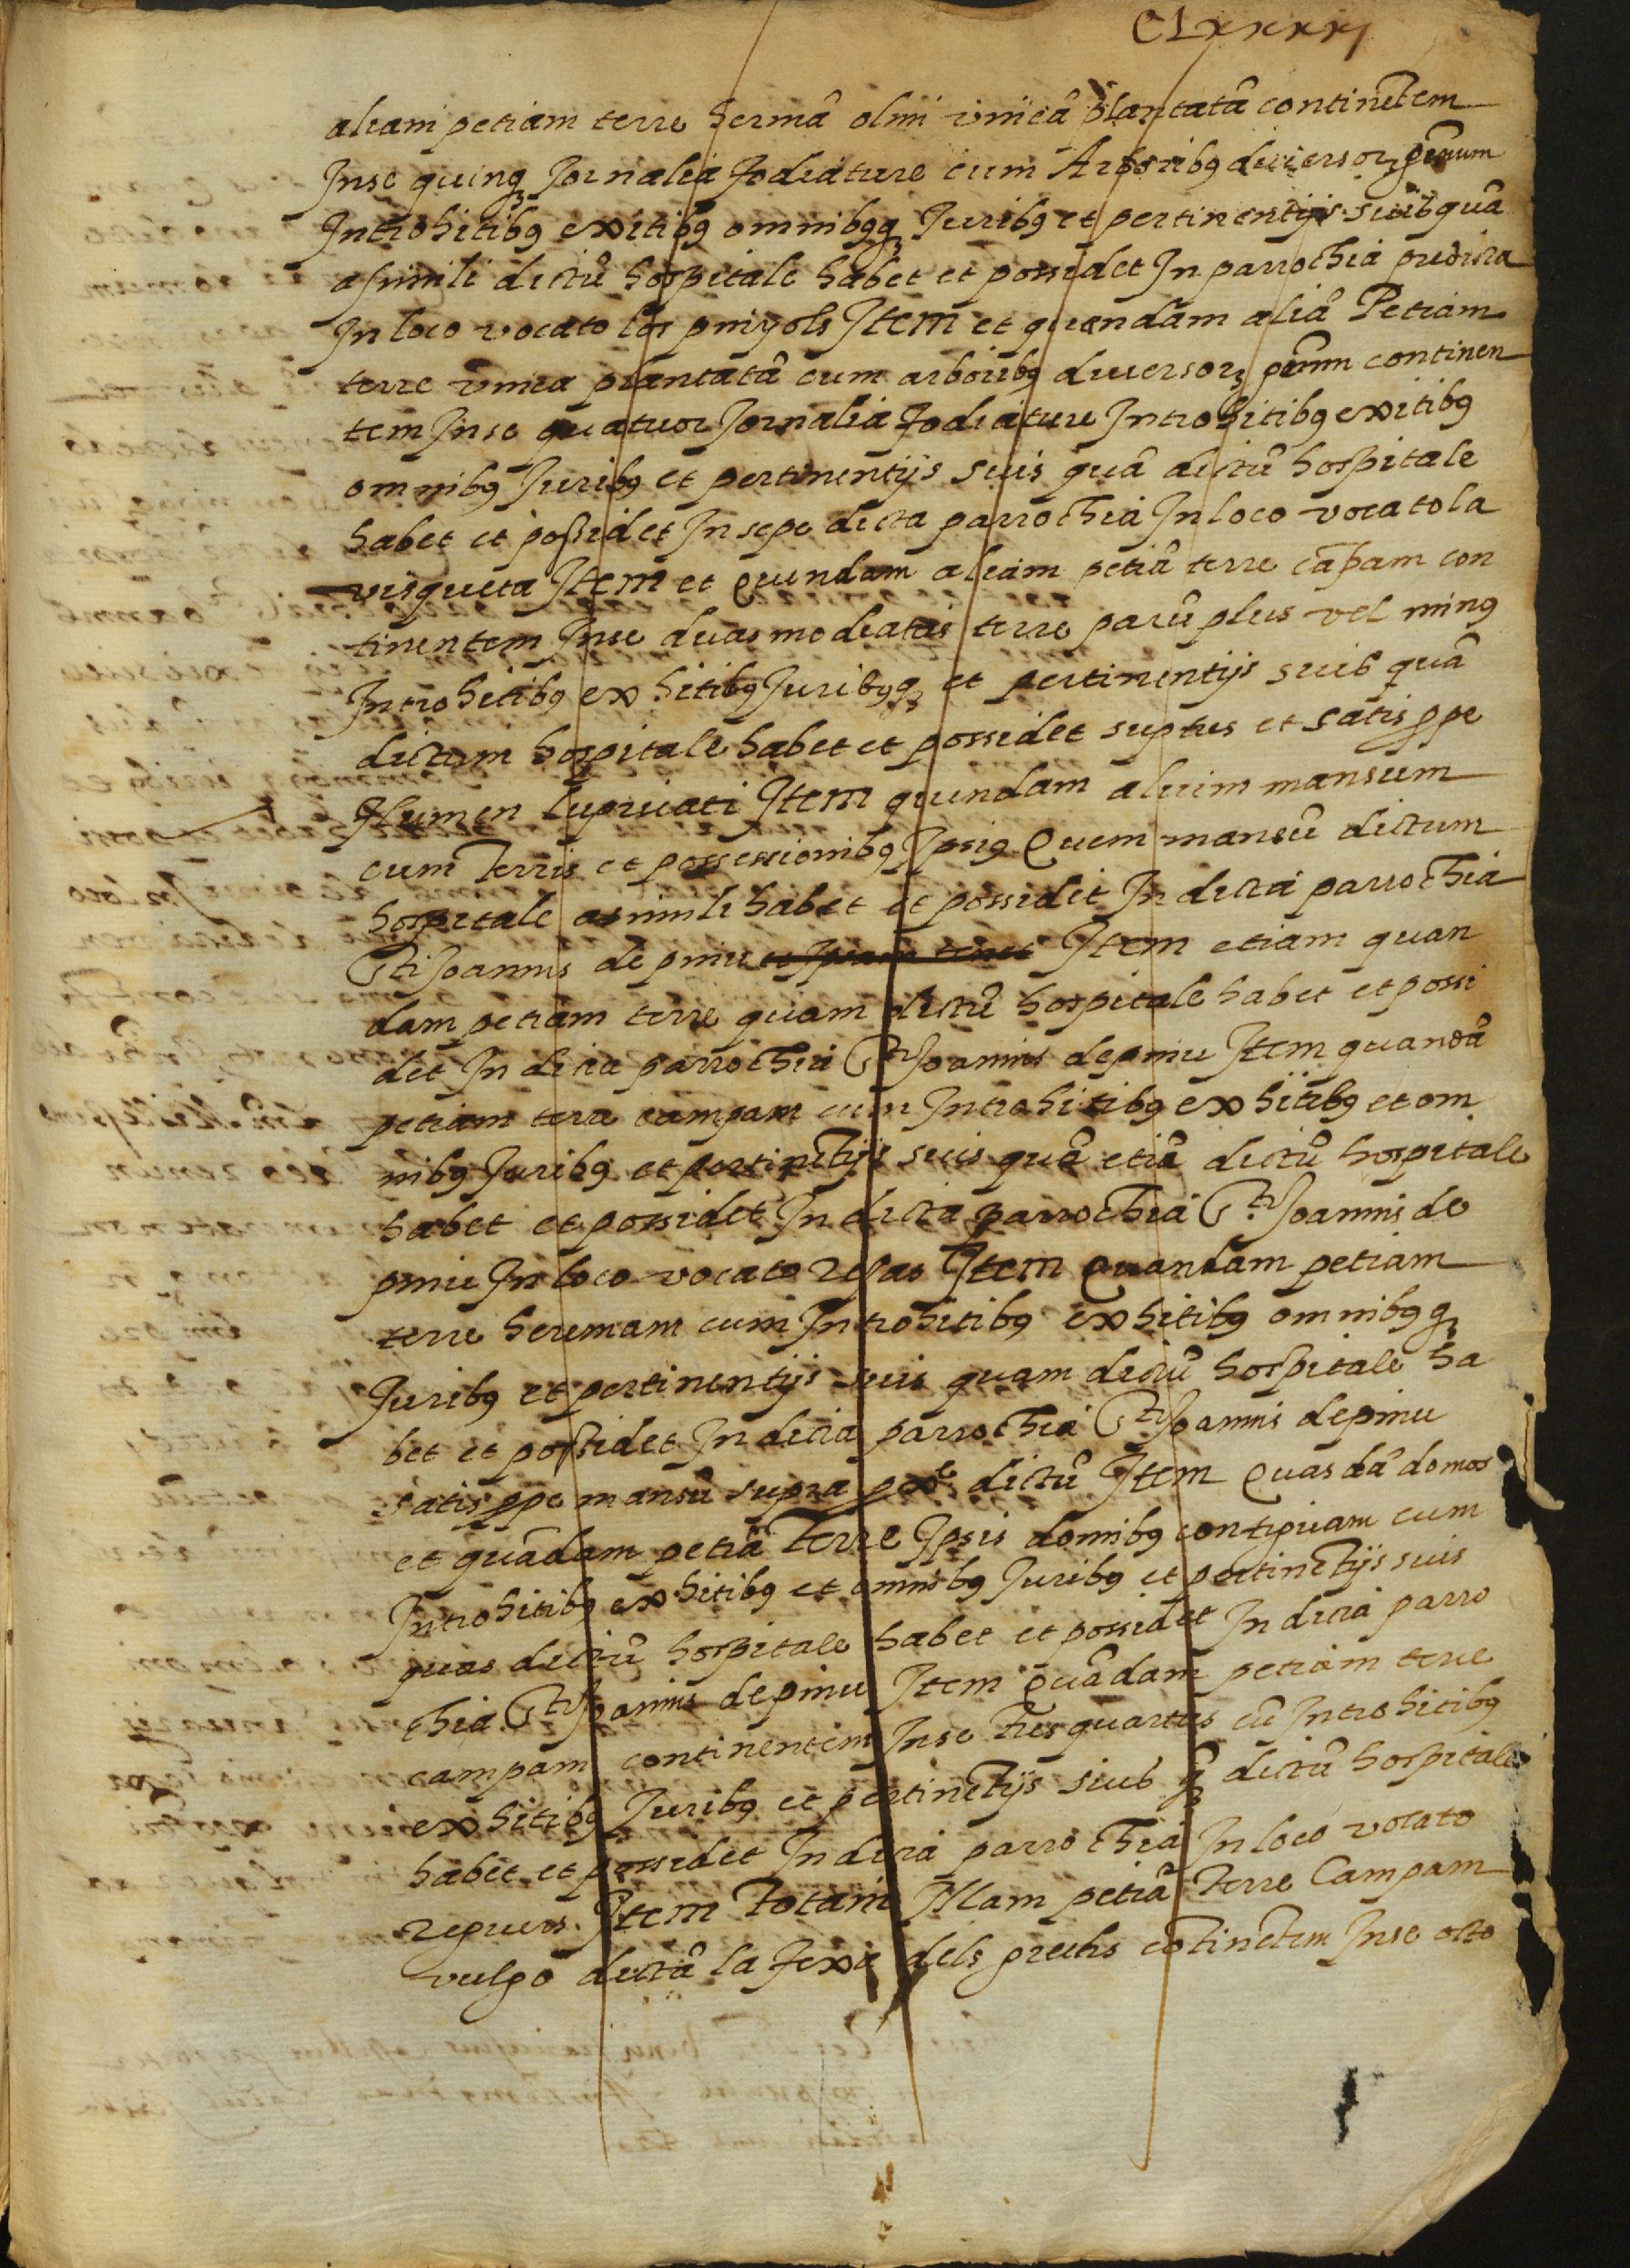 CLxxxxj
aliam petiam terre hermã olim vineã plantatã continẽtem
Inse quinqꝫ Jornalia fodiature cum Arboribꝯ diuersorꝫ genẽum
Introhitibꝯ exitibꝯ omnibꝯqꝫ Juribꝯ et pertinentijs suis quã
asimili dictũ hospitale habet et possidet In parrochia predicta
In loco vocato los pinyols Item et quandam aliã Petiam
terre vinea plantatã cum arboribꝯ diuersorꝫ genũm continen
tem Inse quatuor Jornalia fodiature Introhitibꝯ exitibꝯ
omnibꝯ Juribꝯ et pertinentijs suis quã dictũ hospitale
habet et possidet In sepe dicta parrochia In loco vocato la
Item et Quandam aliam petiã terre cãpam con
tinentem Inse duas modiatas terre parũ plus vel minꝯ
Introhitibꝯ exhitibꝯ Juribꝯqꝫ et pertinentijs suis quã
dictum hospitale habet et possidet suptus et satis ꝓpe
flumen Lupricati Item quendam alium mansum
cum Terris et possessionibꝯ Ipsiꝯ Quem mansũ dictum
hospitale asimili habet et possidet In dicta parrochia
Sti Joannis de pinu Item etiam quan
dam petiam terre quam dictũ hospitale habet et possi
det In dicta parrochia Sti Joannis de pinu Item quandã
petiam terra campam cum Introhitibꝯ exhitibꝯ et om
nibꝯ Juribꝯ et pertinẽtijs suis quã etiã dictũ hospitale
habet et possidet In dicta parrochia Sti Joannis de
pinu In loco vocato Item Quandam petiam
terre heremam cum Introhitibꝯ exhitibꝯ omnibꝯqꝫ
Juribꝯ et pertinentijs suis quam dictũ hospitale ha
bet et possidet In dicta parrochia Sti Joannis de pinu
satis ꝓpe mansũ supra dictũ Item Quasdã domos
et quãdam petiã Terre Ipsis domibꝯ contiguam cum
Introhitibꝯ exhitibꝯ et omnibꝯ Juribꝯ et pertinẽtijs suis
quas dictũ hospitale habet et possidet In dicta parro
chia Sti Joannis de pinu Item Quãdam petiam terre
campam continentem Inse tres quartas cũ Introhitibꝯ
exhitibꝯ Juribꝯ et pertinẽtijs suis dictũ hospitale
habet et possidet In dicta parrochia In loco vocato
reguers. Item Totam Illam petiã Terre Campam
vulgo dictã la fexa dels cõtinẽtem Inse octo